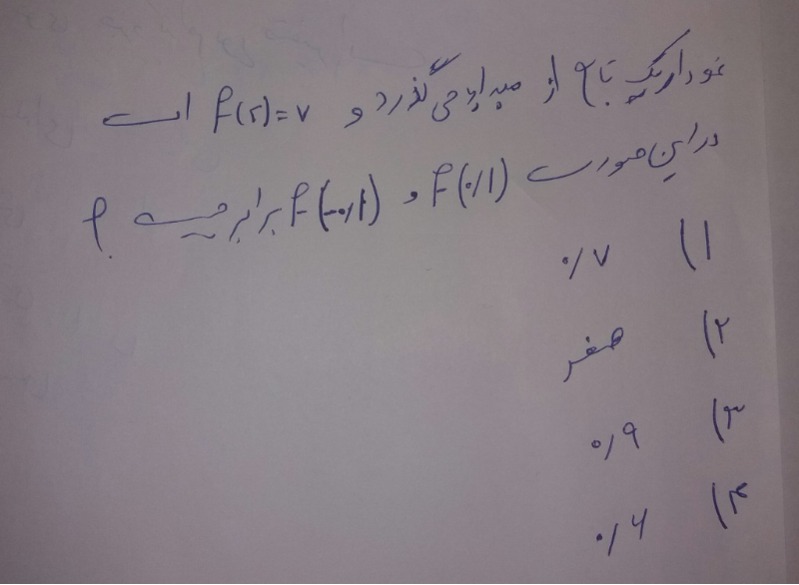 نمودار یک تابع از مبدا می گذرد و f(۲)=۷ است
در این صورت f(۰/۱) و f(-۰/۱) برابر چیست ؟
۱) ۰/۷
۲) صفر
۳) ۰/۹
۴) ۰/۶